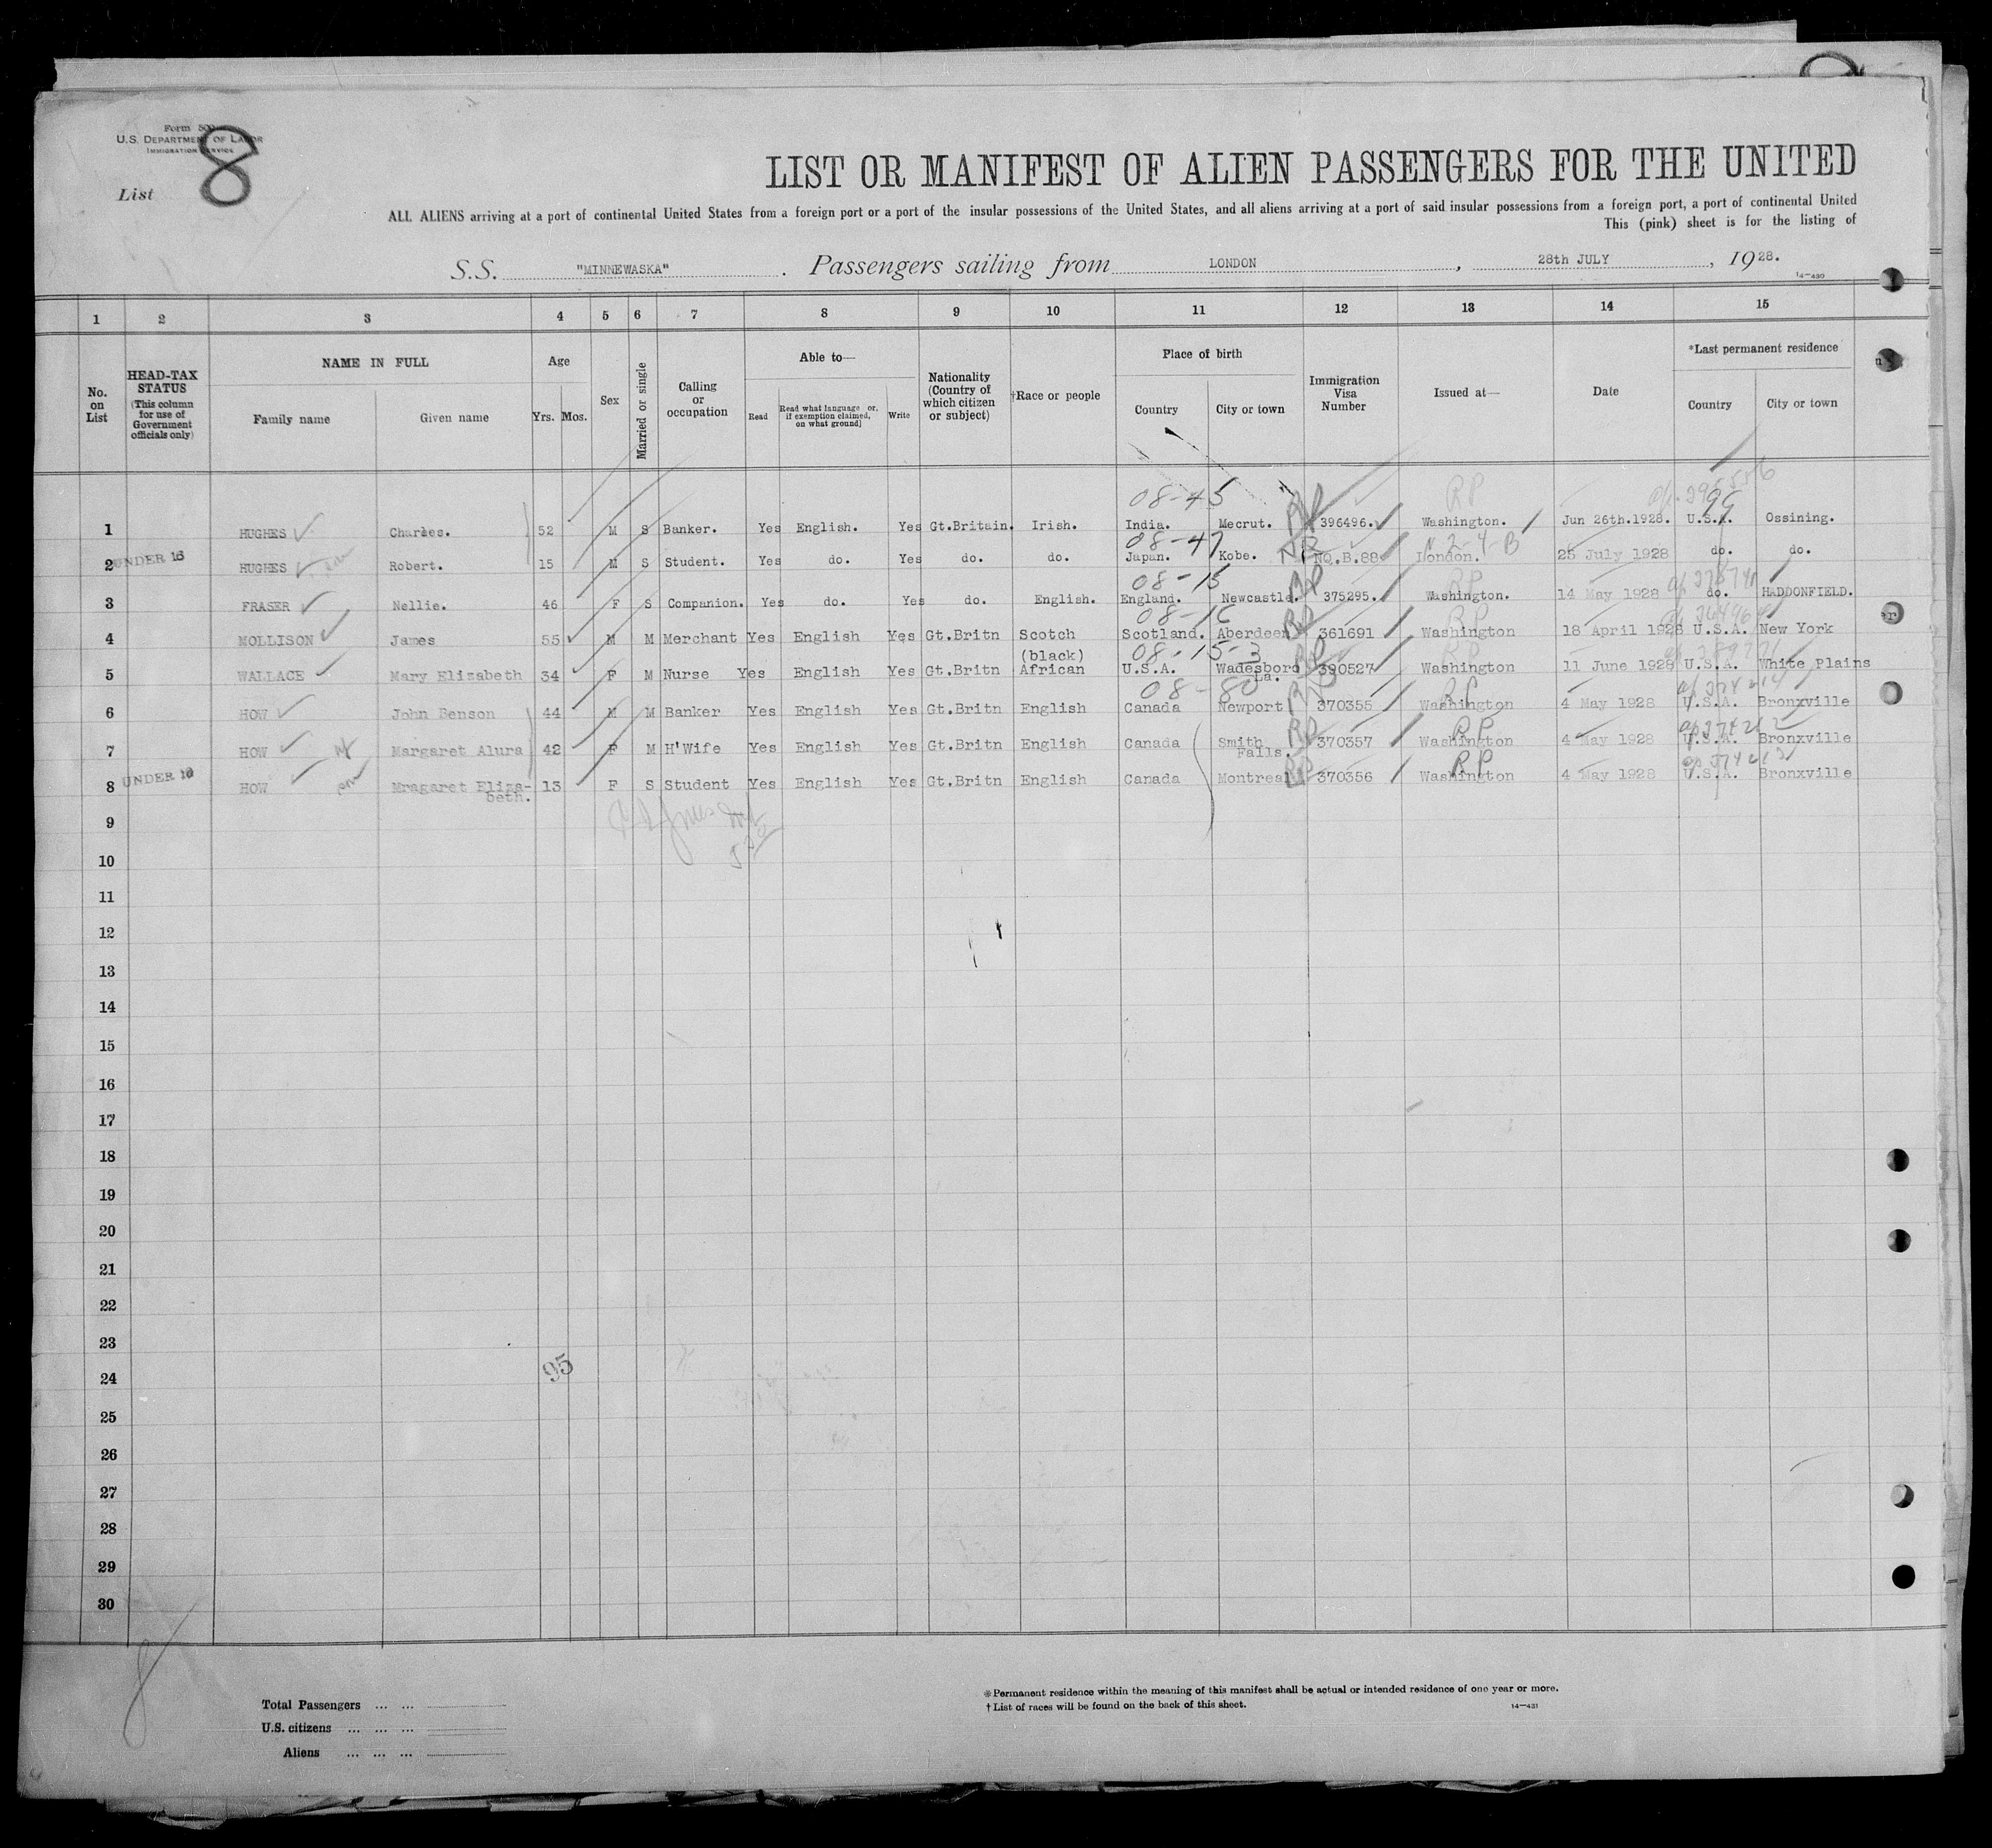 Form 500
U.S. DEPARTMENT OF LABOR
IMMIGRATION SERVICE
List 8
LIST OR MANIFEST OF ALIEN PASSENGERS FOR THE UNITED
ALL ALIENS arriving at a port of continental United States from a foreign port or a port of the insular possessions of the United States, and all aliens arriving at a port of said insular possessions from a foreign port, a port of continental United
This (pink) sheet is for the listing of
S.S. "MINNEWASKA" . Passengers sailing from LONDON , 28th JULY , 1928.
14-430
1 2 3 4 5 6 7 8 9 10 11 12 13 14 15
No. on List
HEAD-TAX STATUS (This column for use of Government officials only)
NAME IN FULL Family name Given name
Age Yrs. Mos.
Sex
Married or single
Calling or occupation
Able to— Read Read what language or, if exemption claimed, on what ground] Write
Nationality (Country of which citizen or subject)
†Race or people
Place of birth Country City or town
Immigration Visa Number
Issued at—
Date
*Last permanent residence Country City or town
08-45 RP RP 99
1 HUGHES Charles. 52 M S Banker. Yes English. Yes Gt.Britain. Irish. India. Mecrut. 396496. Washington. Jun 26th.1928. U.S.A. Ossining.
08-47 NR N 2-4-B
2 UNDER 16 HUGHES Robert. 15 M S Student. Yes do. Yes do. do. Japan. Kobe. NQ.B.88 London. 25 July 1928 do. do.
08-15 RP RP
3 FRASER Nellie. 46 F S Companion. Yes do. Yes do. English. England. Newcastle. 375295. Washington. 14 May 1928 do. HADDONFIELD.
08-16 RP RP
4 MOLLISON James 55 M M Merchant Yes English Yes Gt.Britn Scotch Scotland. Aberdeen 361691 Washington 18 April 1928 U.S.A. New York
(black) 08-15-3 RP RP
5 WALLACE Mary Elizabeth 34 F M Nurse Yes English Yes Gt.Britn African U.S.A. Wadesboro La. 390527 Washington 11 June 1928 U.S.A. White Plains
08-80 RP RP
6 HOW John Benson 44 M M Banker Yes English Yes Gt.Britn English Canada Newport 370355 Washington 4 May 1928 U.S.A. Bronxville
RP RP
7 HOW Margaret Alura 42 F M H'Wife Yes English Yes Gt.Britn English Canada Smith Falls. 370357 Washington 4 May 1928 U.S.A. Bronxville
RP RP
8 UNDER 16 HOW Mragaret Eliza-beth. 13 F S Student Yes English Yes Gt.Britn English Canada Montreal 370356 Washington 4 May 1928 U.S.A. Bronxville
9
10
11
12
13
14
15
16
17
18
19
20
21
22
23
95
24
25
26
27
28
29
30
8
Total Passengers ... ...
U.S. citizens ... ... ...
Aliens ... ... ...
*Permanent residence within the meaning of this manifest shall be actual or intended residence of one year or more.
†List of races will be found on the back of this sheet.
14-431